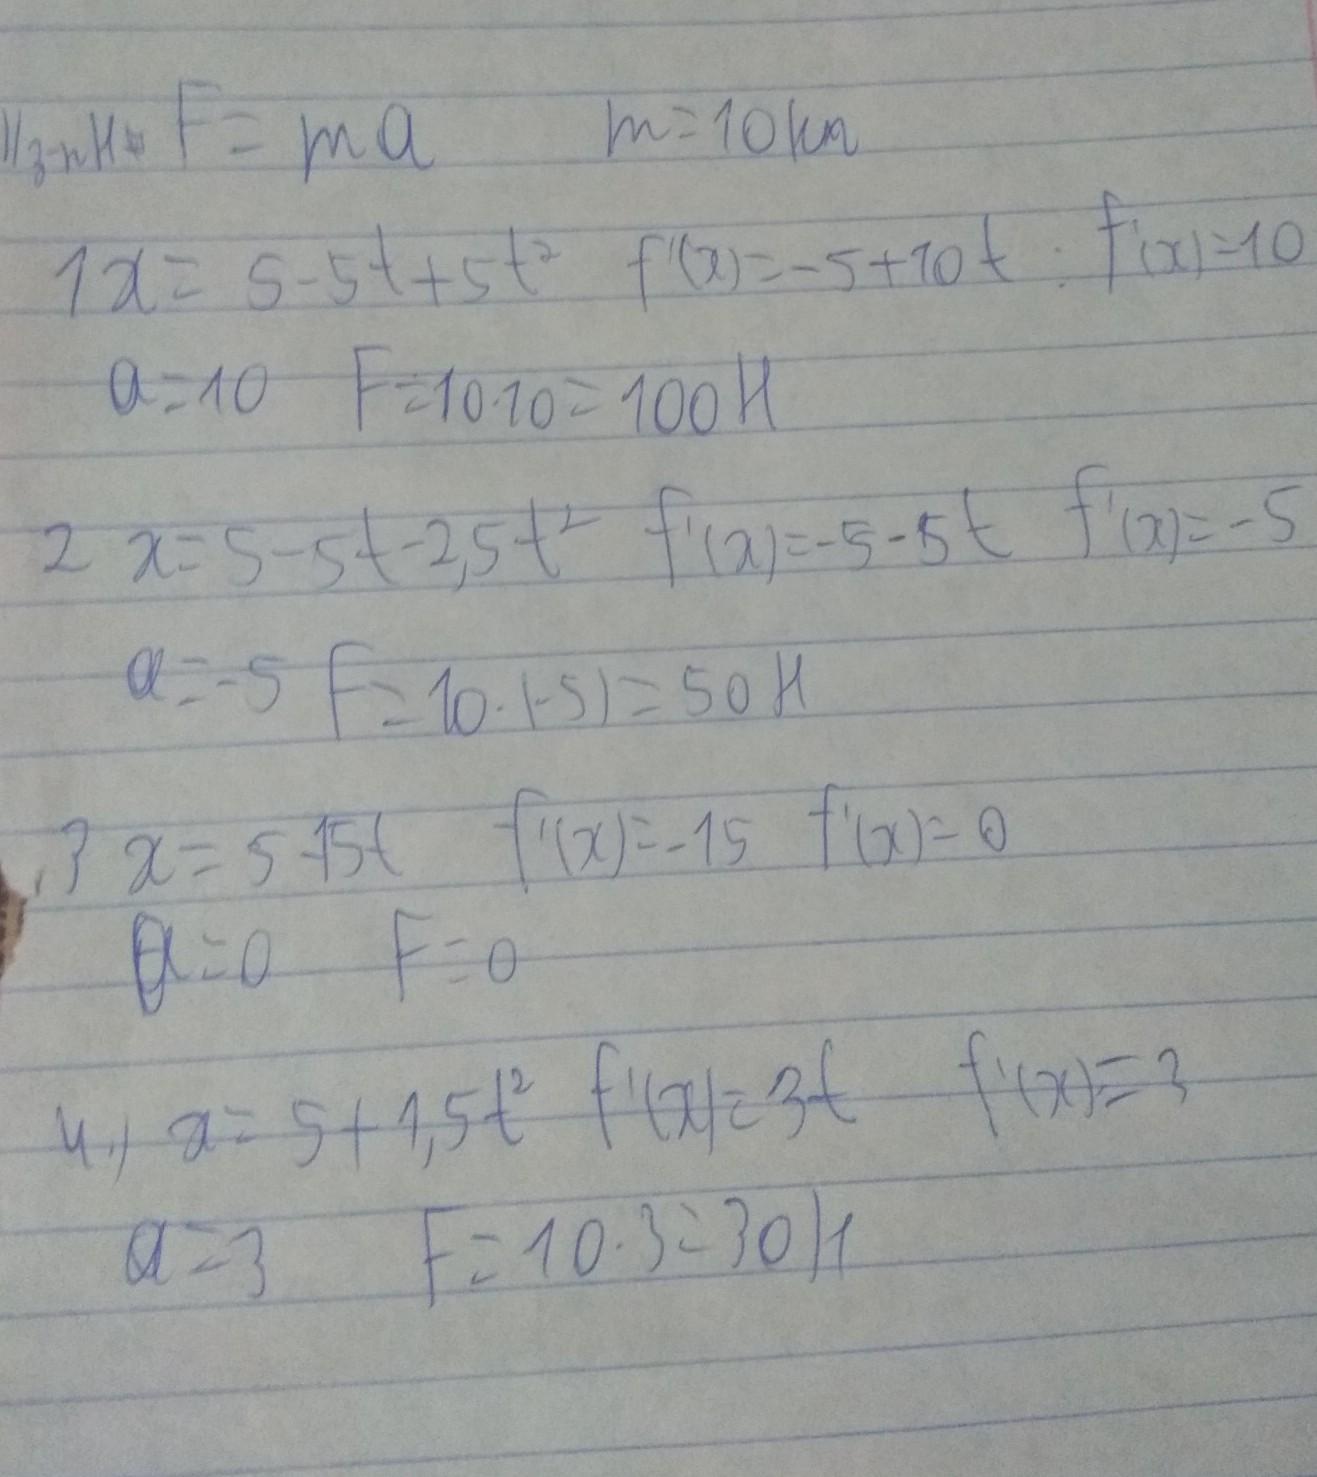 II з-н Н. F = ma m=10
1 x = 5-5t+5t² f'(x)=-5+10t. f'(x)=10
a=10 F=10·10=100 Н
2 x=5-5t-2,5t² f'(x)=-5-5t f'(x)=-5
a=-5 F=10·(-5)=50 Н
3 x=5-15t f'(x)=-15 f'(x)=0
a=0 F=0
4.) x=5+1,5t² f'(x)=3t f'(x)=3
a=3 F=10·3=30 Н